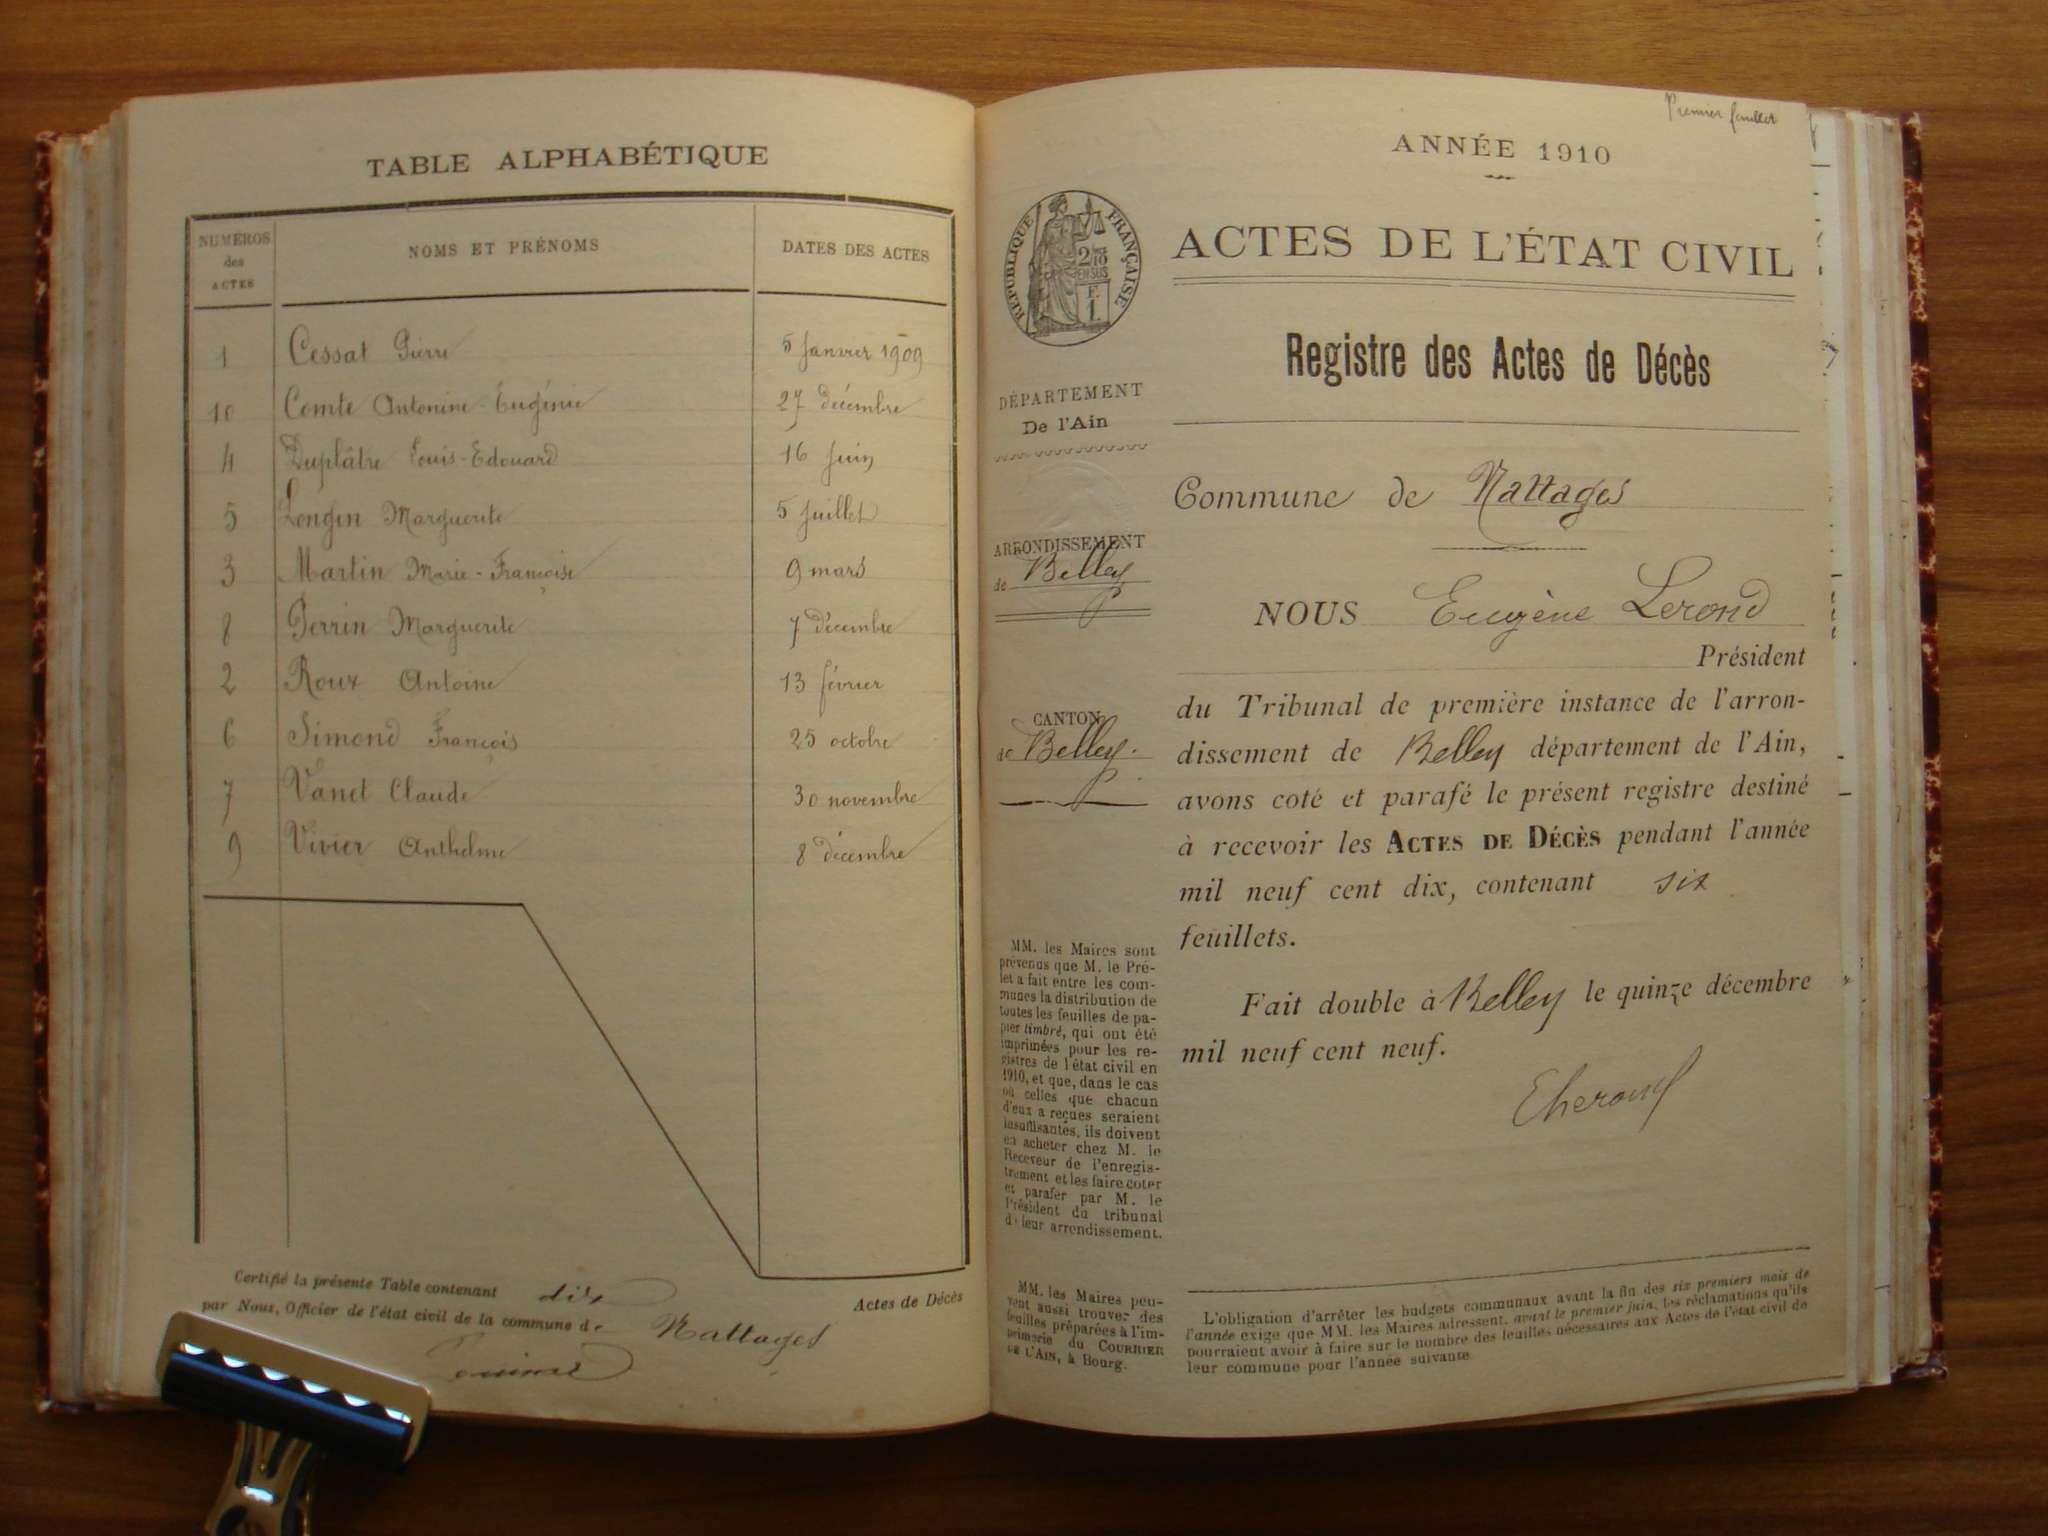 TABLE ALPHABÉTIQUE
NUMÉROS des ACTES NOMS ET PRÉNOMS DATES DES ACTES
1 Cessat Pierre 5 Janvier 1909
10 Comte Antonine-Eugénie 27 décembre
4 Duplâtre Louis-Edouard 16 Juin
5 Longin Marguerite 5 Juillet
3 Martin Marie-Françoise 9 mars
8 Perrin Marguerite 7 décembre
2 Roux Antoine 13 février
6 Simond François 25 octobre
7 Vanet Claude 30 novembre
9 Vivier Anthelme 8 décembre
Certifié la présente Table contenant dix Actes de Décès
par Nous, Officier de l'état civil de la commune de Nattages
Premier feuillet
ANNÉE 1910
RÉPUBLIQUE FRANÇAISE
2/10
EN SUS
F.
1.
ACTES DE L'ÉTAT CIVIL
Registre des Actes de Décès
DÉPARTEMENT
De l'Ain
ARRONDISSEMENT
de Belley
CANTON
de Belley.
MM. les Maires sont
prévenus que M. le Pré-
fet a fait entre les com-
munes la distribution de
toutes les feuilles de pa-
pier timbré, qui ont été
imprimées pour les re-
gistres de l'état civil en
1910, et que, dans le cas
où celles que chacun
d'eux a reçues seraient
insuffisantes, ils doivent
en acheter chez M. le
Receveur de l'enregis-
trement et les faire coter
et parafer par M. le
Président du tribunal
de leur arrondissement.
MM. les Maires peu-
vent aussi trouver des
feuilles préparées à l'im-
primerie du COURRIER
DE L'AIN, à Bourg.
Commune de Nattages
NOUS Eugène Lerond
Président
du Tribunal de première instance de l'arron-
dissement de Belley département de l'Ain,
avons coté et parafé le présent registre destiné
à recevoir les ACTES DE DÉCÈS pendant l'année
mil neuf cent dix, contenant six
feuillets.
Fait double à Belley le quinze décembre
mil neuf cent neuf.
L'obligation d'arrêter les budgets communaux avant la fin des six premiers mois de
l'année exige que MM. les Maires adressent, avant le premier juin, les réclamations qu'ils
pourraient avoir à faire sur le nombre des feuilles nécessaires aux Actes de l'état civil de
leur commune pour l'année suivante